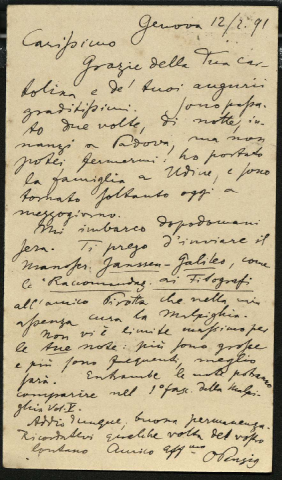 Genova 12/2. 91
Carissimo
Grazie della Tua Car-
tolina e de' tuoi augurii
graditissimi. Sono passa-
to due volte, di notte, in-
nanzi a Padova, ma non
potei fermarmi: ho portato
la famiglia a Udine, e sono
tornato soltanto oggi a
mezzogiorno.
Mi imbarco dopodomani
sera. Ti prego d'inviare il
Manoscr. Janssen-Galileo, come
le "Raccomandaz. ai Fitografi
all'amico Pirotta che nella mia
assenza cura la Malpighia.
Non vi è limite massimo per
le tue note: più sono grosse
e più sono frequenti, meglio
sarà. Entrambe le note potranno
comparire nel 1° fasc. della Malpi-
ghia Vol. V.
Addio dunque, buona permanenza.
Ricordatevi qualche volta del vostro
lontano Amico aff.mo
O Penzig